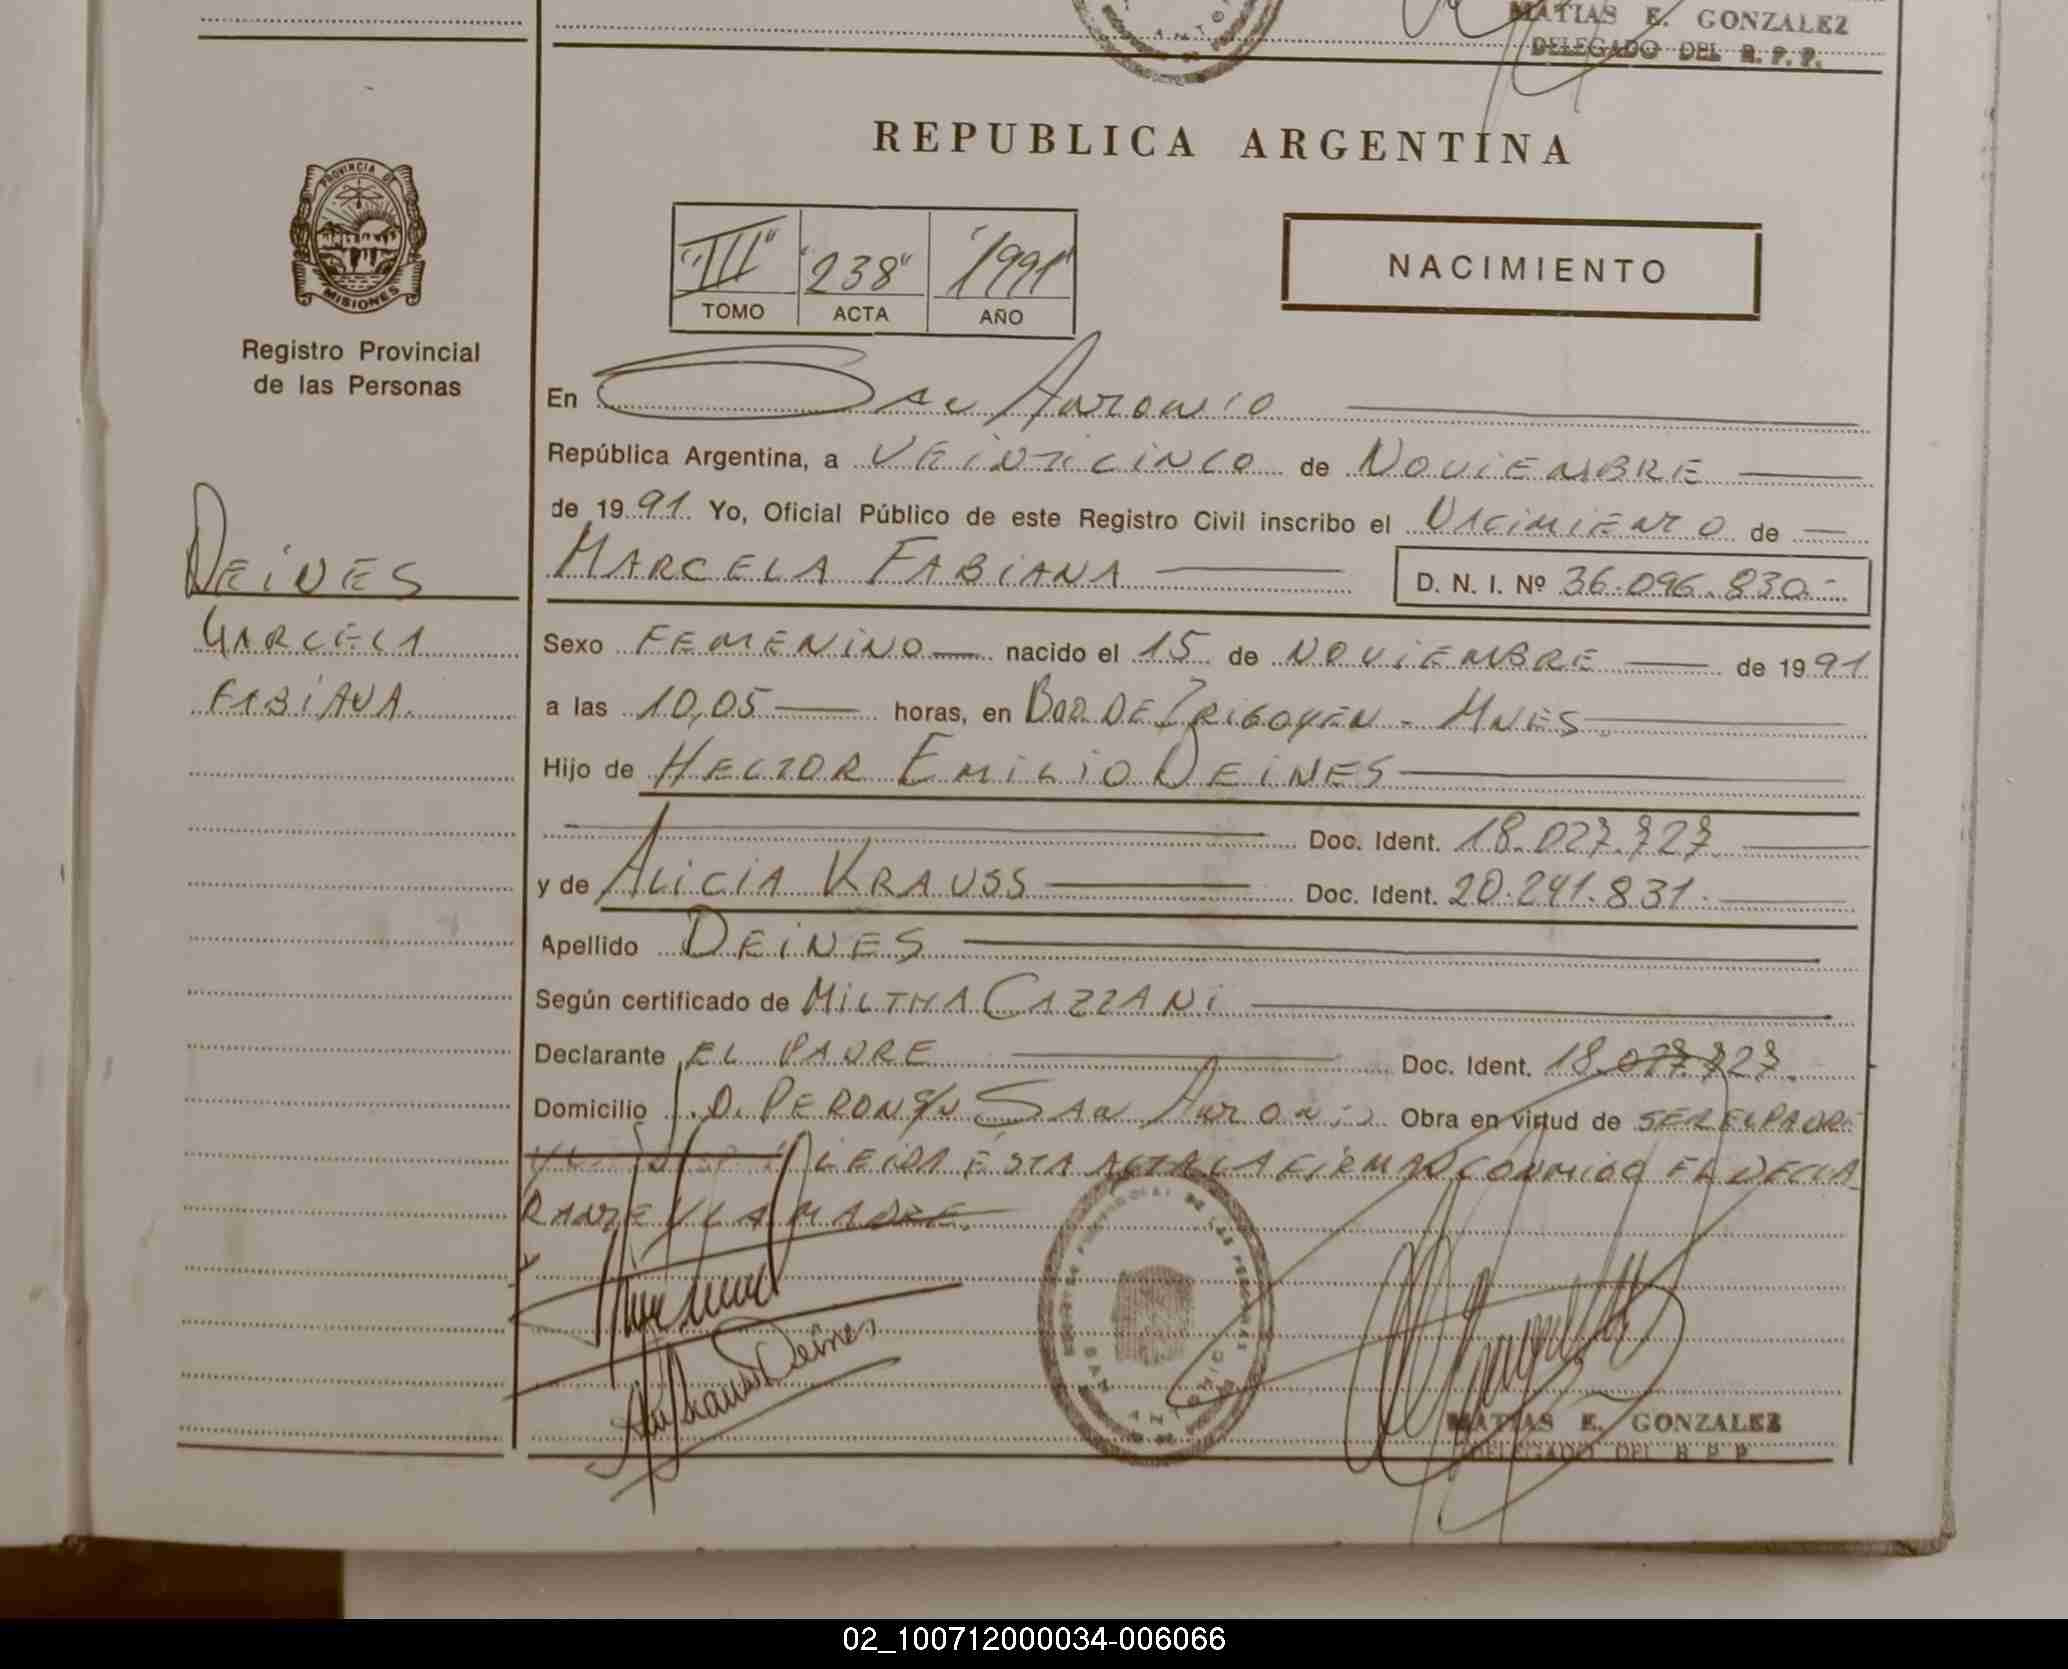 MATIAS E. GONZALEZ
DELEGADO DEL R. P. P.
REPUBLICA ARGENTINA
PROVINCIA DE
MISIONES
Registro Provincial
de las Personas
"III" "238" "1991"
TOMO ACTA AÑO
NACIMIENTO
En San Antonio
República Argentina, a VEINTICINCO de NOVIEMBRE
de 1991. Yo, Oficial Público de este Registro Civil inscribo el NACIMIENTO de
DEINES
MARCELA
FABIANA
MARCELA FABIANA D. N. I. Nº 36.096.830.-
Sexo FEMENINO nacido el 15 de NOVIEMBRE de 1991
a las 10,05 horas, en BDO. DE IRIGOYEN - MNES.
Hijo de HECTOR EMILIO DEINES
Doc. Ident. 18.027.727
y de ALICIA KRAUSS Doc. Ident. 20.241.831.
Apellido DEINES
Según certificado de MILTHA CAZZANI
Declarante EL PADRE Doc. Ident. 18.027.727.
Domicilio J.D. PERON S/N San Antonio Obra en virtud de SER EL PADRE
LEIDA ESTA ACTA LA FIRMAN CONMIGO EL DECLA
RANTE Y LA MADRE.
Krauss Deines
SAN ANTONIO
MATIAS E. GONZALEZ
DELEGADO DEL R. P. P.
02_100712000034-006066